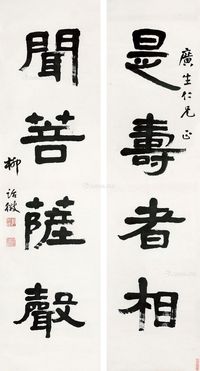 廣生仁兄正
是壽者相
聞菩薩聲
柳詒徵